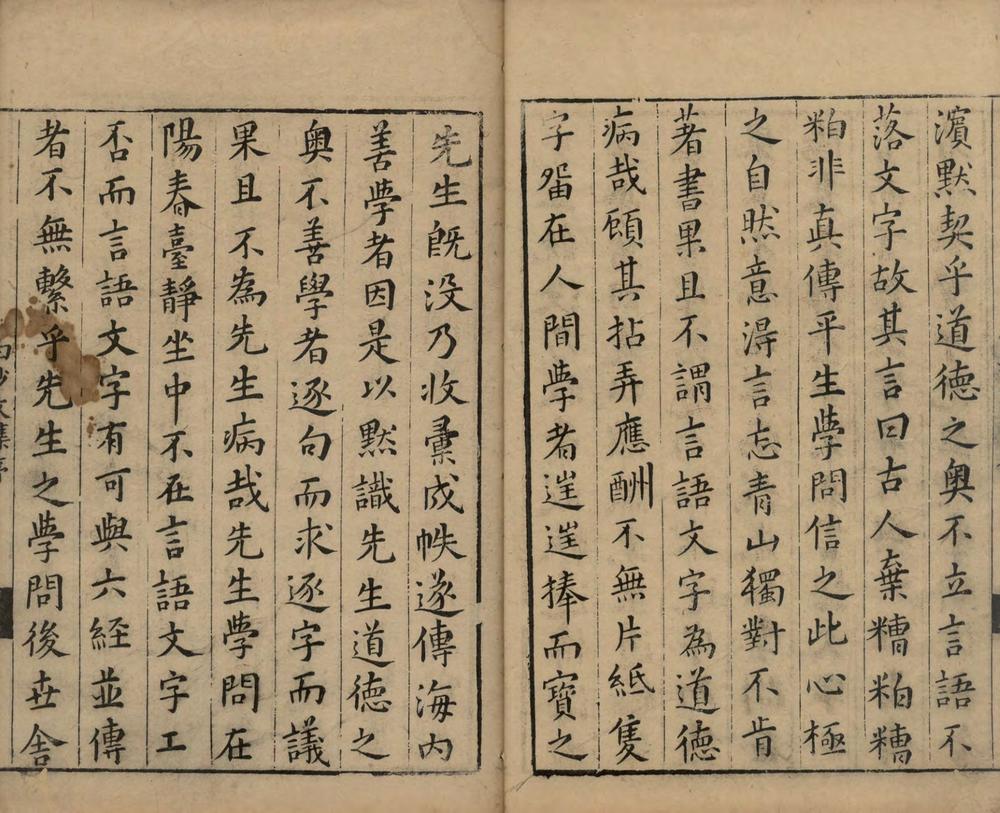 濵默契乎道德之奥不立言語不
落文字故其言曰古人棄糟粕糟
粕非真傳平生學問信之此心極
之自然意淂言忘青山獨對不肯
著書果且不謂言語文字為道德
病哉顧其拈弄應酬不無片紙隻
字畱在人間學者逩逩捧而寶之
先生旣没乃收彚成帙遂傳海内
善學者因是以默識先生道德之
奥不善學者逐句而求逐字而議
果且不為先生病哉先生學問在
陽春臺靜坐中不在言語文字工
否而言語文字有可與六経並傳
者不無繫乎先生之學問後世舍
白沙文集序